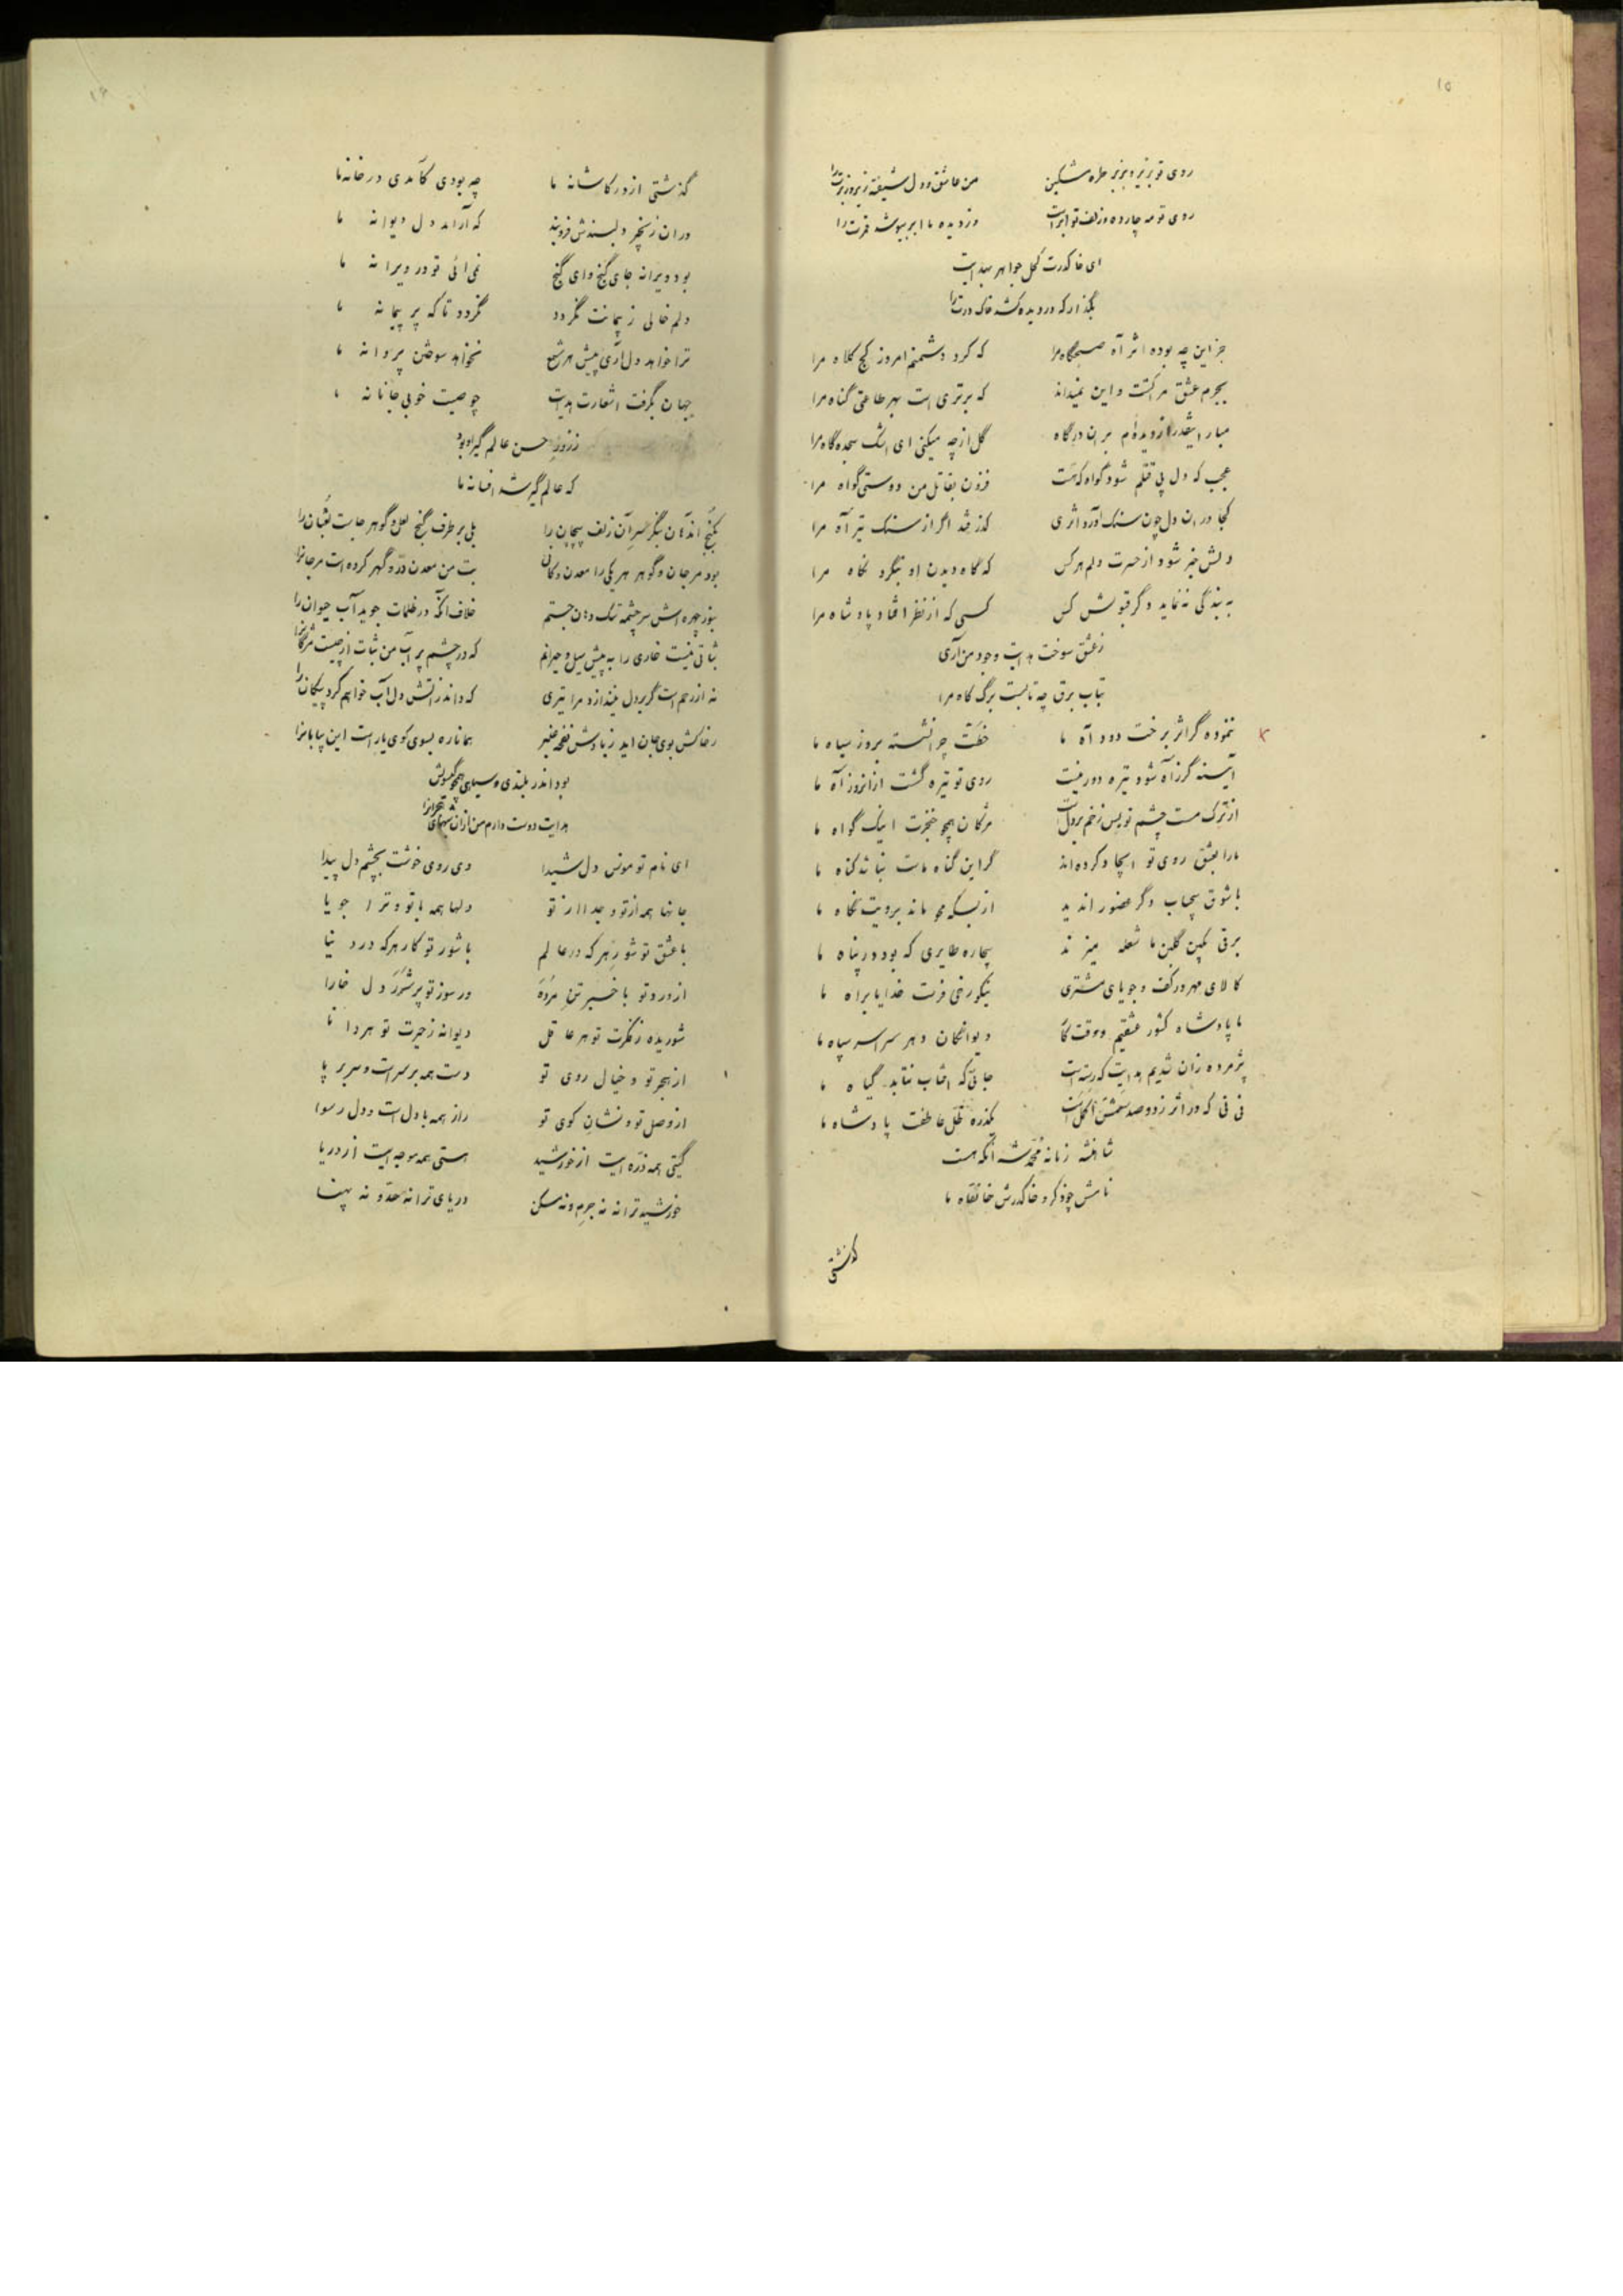 ۱۵
روی تو بزیر و بزبر طره مشکین من عاشق و دل شیفته زیر و زبرت را
روی تو مه چارده و زلف تو ابرست دزدیده ما ابر بپوشد قمرت را
ای خاکدرت کحل جواهر بهدایت
بگذار که در دیده کشد خاک درت را
جز این چه بوده اثر آه صبحگاه مرا که کرد دشمنم امروز کج کلاه مرا
بجرم عشق مرا کشت و این نمیداند که برتری است بهر طاعتی گناه مرا
مبار اینقدر از دیده‌ام بران درگاه گل از چه میکنی ای اشک سجده گاه مرا
عجب که دل پی قتلم شود گواه کهست فزون بقاتل من دوستی گواه مرا
کجا در ان دل چون سنک آورد اثری گذر فتد اگر از سنک تیر آه مرا
دلش خبر شود از حسرت دلم هرکس که گاه دیدن او بنگرد نگاه مرا
به بندگی ننماید دگر قبولش کس کسی که از نظر افتاد پادشاه مرا
ز عشق سوخت هدایت وجود من آری
بتاب برق چه تابست برگ کاه مرا
ننموده گر اثر برخت دود آه ما خطت چرا نشسته بروز سیاه ما
آیینه گر ز آه شود تیره دور نیست روی تو تیره گشت از انروز آه ما
از ترک مست چشم تو بس زخم بر دلست مژگان همچو خنجرت اینک گواه ما
ما را بعشق روی تو ایجاد کرده‌اند گر این گناه ماست نباشد گناه ما
با شوق بیحجاب دگر حضور اندید از بسکه محو ماند برویت نگاه ما
برقی بکین گلبن ما شعله میزند بیچاره طایری که بود در پناه ما
کالای مهر در کف و جویای مشتری نیکورخی فرست خدایا براه ما
ما پادشاه کشور عشقیم و وقت کار دیوانگان دهر سراسر سپاه ما
پژمرده زان شدیم هدایت که رسته است جائی که افتاب نتابد گیاه ما
نی نی که در اثر ز دو صد شمس اکمل است یکذره ظل عاطفت پادشاه ما
شاهنشه زمانه محمد شه آنکه هست
نامش چو ذکر و خاکدرش خانقاه ما
گذشتی
۱۶
گذشتی از در کاشانه ما چه بودی کآمدی در خانه ما
در ان زنجیر دلبندش فروبند که آرامد دل دیوانه ما
بود ویرانه جای گنج و ای گنج نمی‌ائی تو در ویرانه ما
دلم خالی ز پیمانت نگردد نگردد تا که پر پیمانه ما
ترا خواهد دل آری پیش هر شمع نخواهد سوختن پروانه ما
جهان بگرفت اشعارت هدایت چو صیت خوبی جانانه ما
ز زور حسن عالم گیر او بود
که عالم گیر شد افسانه ما
بکنج اندهان بنگر سر آن زلف پیچان را بلی بر طرف گنج لعل و گوهر جاست ثعبان را
بود مرجان و گوهر هر یکی را معدن و کانی بت من معدن در و گهر کرده است مرجانرا
بنور چهره‌اش سرچشمه تنک دهان جستم خلاف انکه در ظلمات جوید آب حیوان را
ثباتی نیست خاری را به پیش سیل و حیرانم که در چشم پر آب من ثبات از چیست مژگانرا
نه از رحم است گر بر دل نیندازد مرا تیری که داند ز اتش دل آب خواهم کرد پیکان را
ز خاکش بوی جان اید ز بادش نفحه عنبر همانا ره بسوی کوی یار است این بیابانرا
بود اندر بلندی و سیاهی همچو گیسویش
هدایت دوست دارم من ازان شبهای هجرانرا
ای نام تو مونس دل شیدا وی روی خوشت بچشم دل پیدا
جانها همه از تو و جدا از تو دلها همه با تو و ترا جویا
با عشق تو شور هر که در عالم با شور تو کار هر که در دنیا
از درد تو با خبر تن مرده در سوز تو پر شرر دل خارا
شوریده ز فکرت تو هر عاقل دیوانه ز حیرت تو هر دانا
از هجر تو و خیال روی تو دست همه بر سر است و سر بر پا
از وصل تو و نشان کوی تو راز همه با دل است و دل رسوا
گیتی همه ذره ایست از خورشید هستی همه موجه ایست از دریا
خورشید ترا نه نه جرم و نه مسکن دریای ترا نه حد و نه پهنا